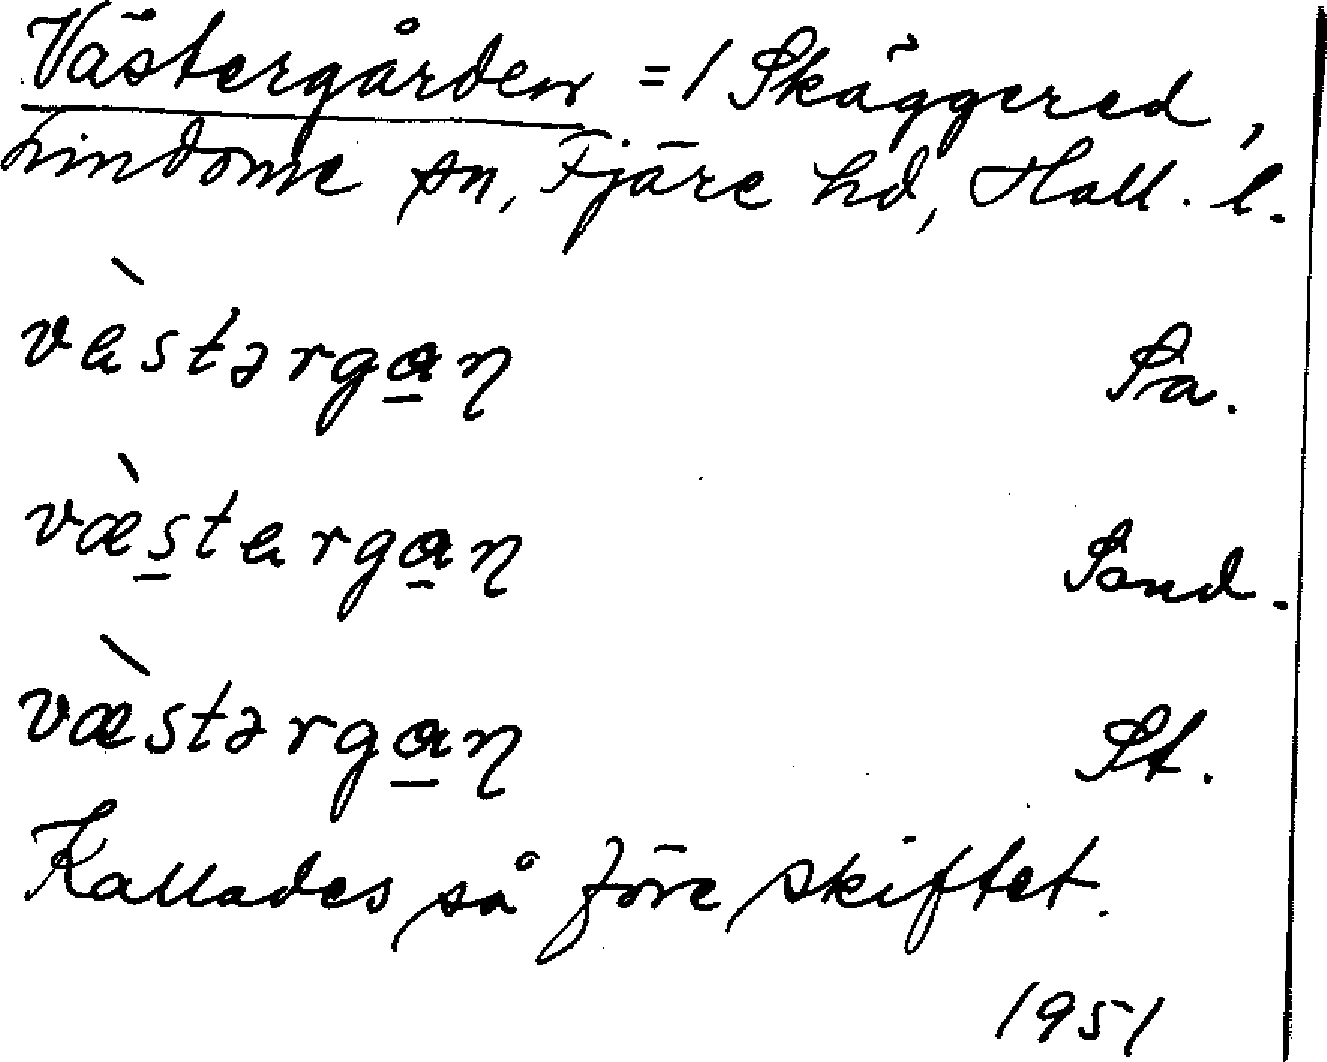 Västergården = 1 Skäggered,
Lindome sn, Fjäre hd, Hall. l.
vὰstərga̲ɳ Sa.
væ̀s̲targa̲ɳ Sand.
væ̀stərga̲ɳ St.
Kallades så före skiftet.
1951